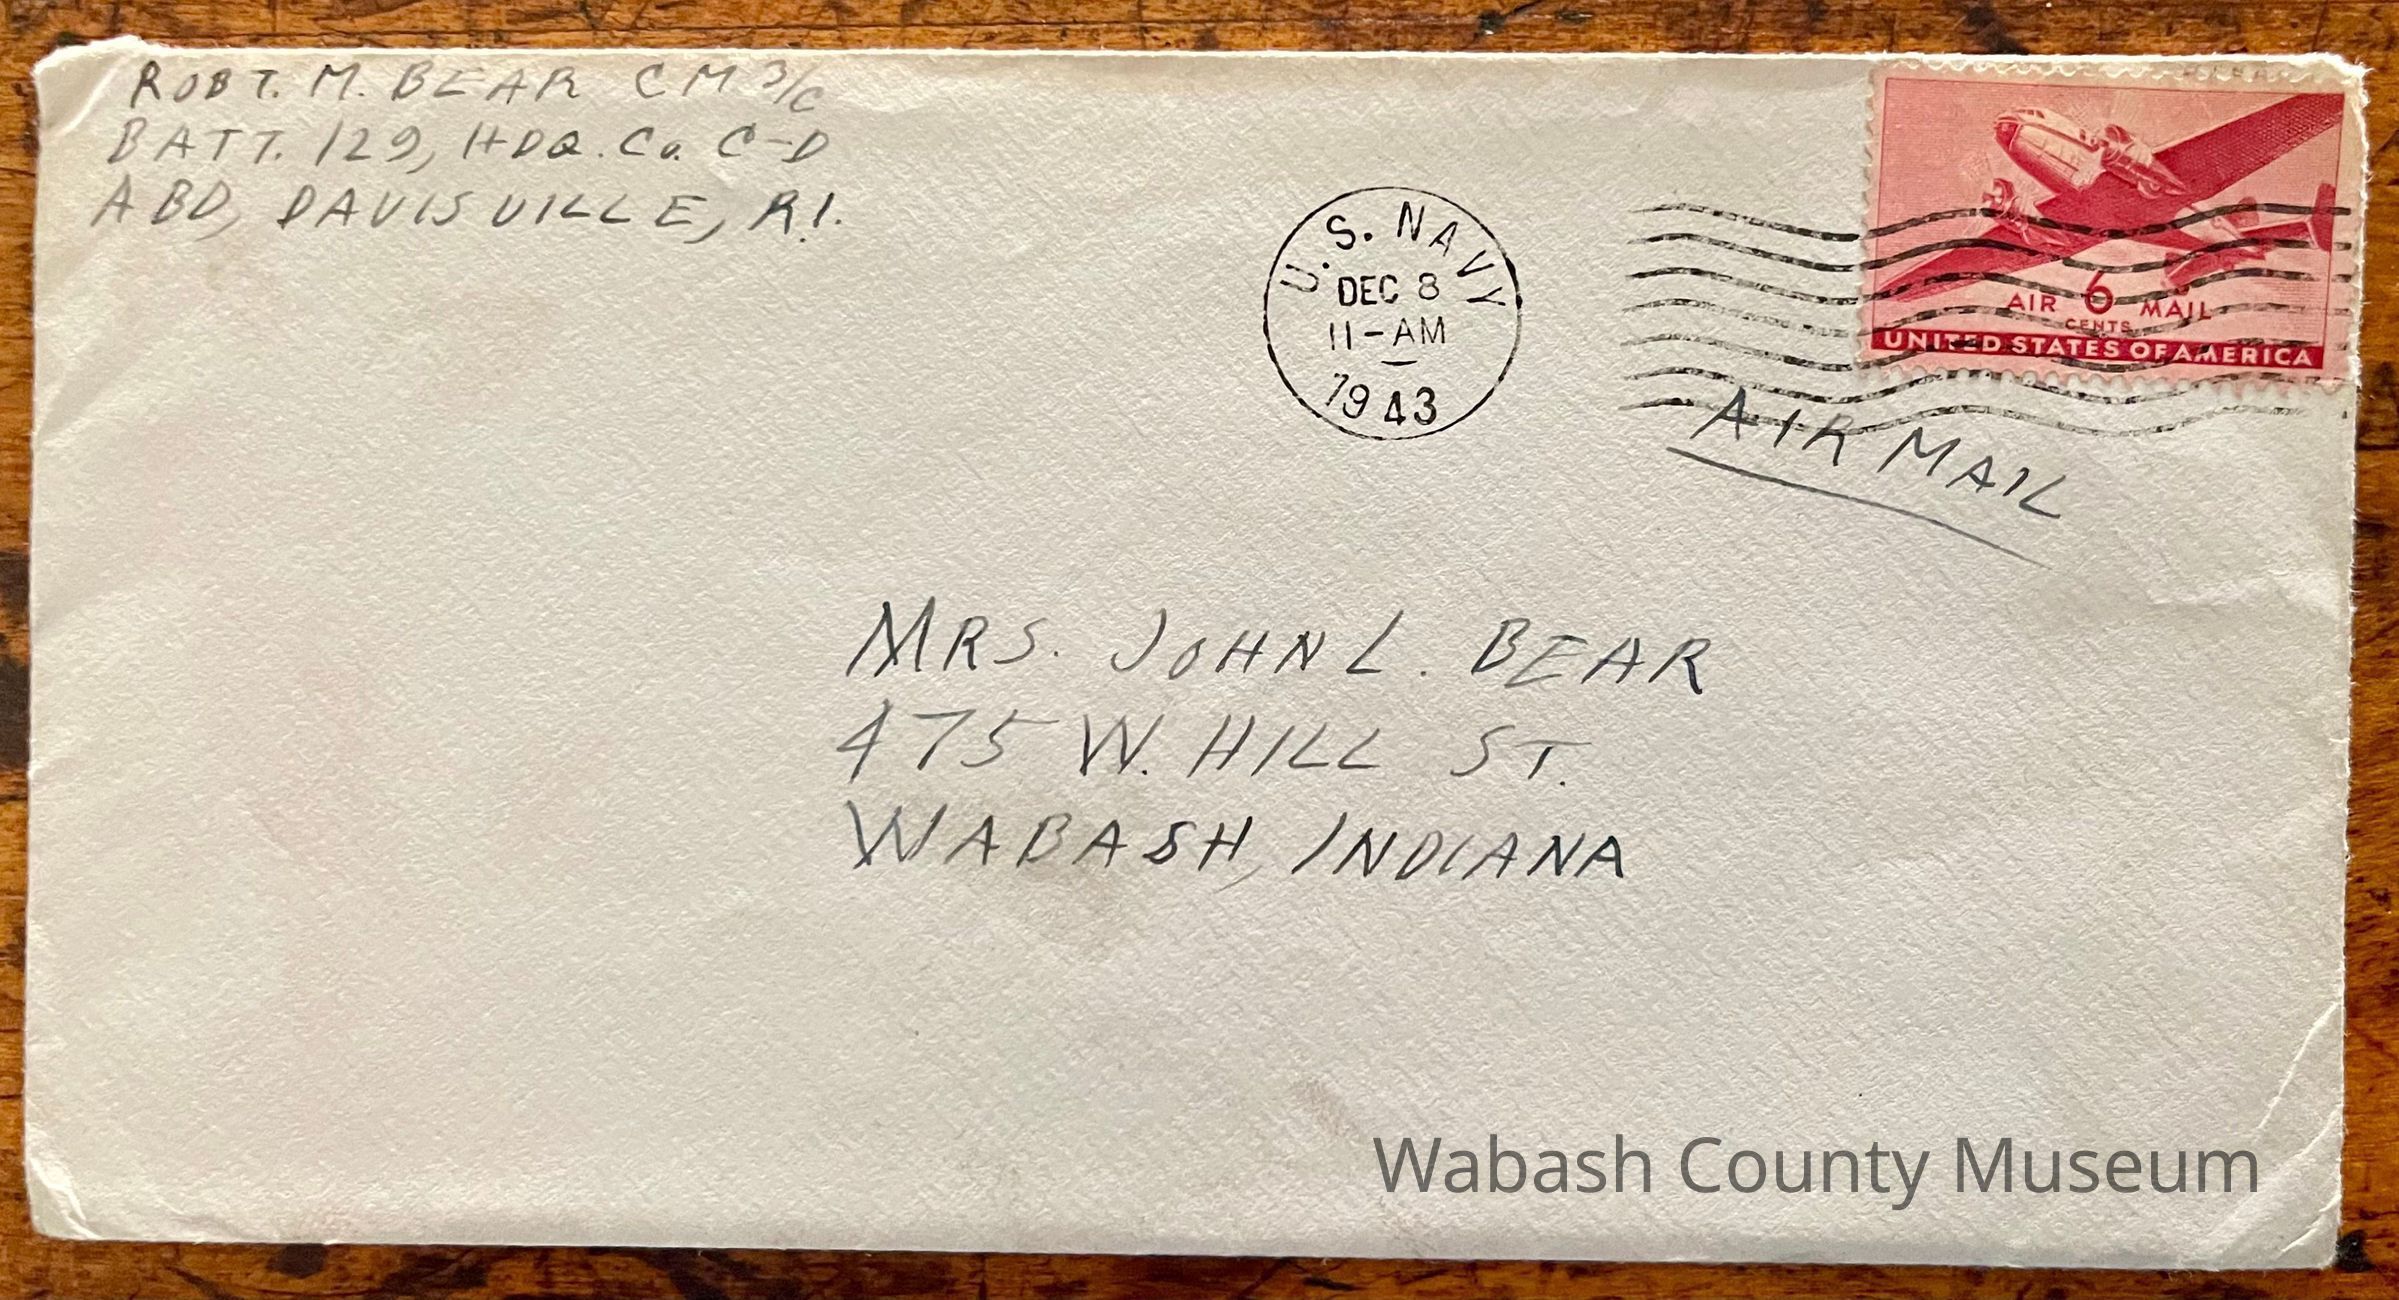 ROBT. M. BEAR CM 3/C
BATT. 129, HDQ. Co. C-D
ABD, DAVISVILLE, R.I.
U.S. NAVY
DEC 8
11-AM
1943
AIR 6 MAIL
CENTS
UNITED STATES OF AMERICA
AIR MAIL
MRS. JOHN L. BEAR
475 W. HILL ST.
WABASH, INDIANA
Wabash County Museum